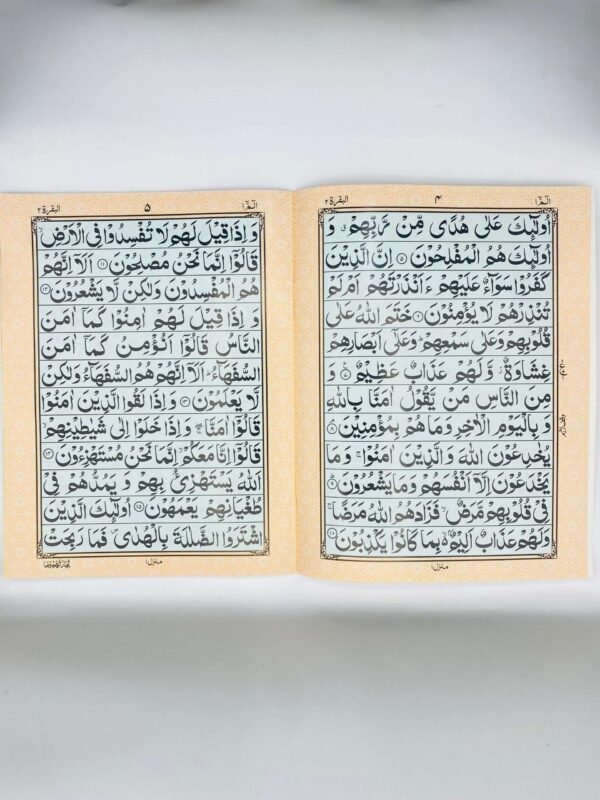 الٓمّٓ ١
۴
البقرة ٢
اُولٰٓئِكَ عَلٰى هُدًى مِّنْ رَّبِّهِمْ ۗ وَ
اُولٰٓئِكَ هُمُ الْمُفْلِحُوْنَ ۵ اِنَّ الَّذِيْنَ
كَفَرُوْا سَوَآءٌ عَلَيْهِمْ ءَاَنْذَرْتَهُمْ اَمْ لَمْ
تُنْذِرْهُمْ لَا يُؤْمِنُوْنَ ۶ خَتَمَ اللّٰهُ عَلٰى
قُلُوْبِهِمْ وَعَلٰى سَمْعِهِمْ ؕ وَعَلٰٓى اَبْصَارِهِمْ
غِشَاوَةٌ ؗ وَّلَهُمْ عَذَابٌ عَظِيْمٌ ۷ وَ
مِنَ النَّاسِ مَنْ يَّقُوْلُ اٰمَنَّا بِاللّٰهِ
وَ بِالْيَوْمِ الْاٰخِرِ وَمَا هُمْ بِمُؤْمِنِيْنَ ۸
يُخٰدِعُوْنَ اللّٰهَ وَ الَّذِيْنَ اٰمَنُوْا ۚ وَ مَا
يَخْدَعُوْنَ اِلَّاۤ اَنْفُسَهُمْ وَمَا يَشْعُرُوْنَ ۹
فِيْ قُلُوْبِهِمْ مَّرَضٌ ۙ فَزَادَهُمُ اللّٰهُ مَرَضًا ۚ
وَلَهُمْ عَذَابٌ اَلِيْمٌۢ ۙ بِمَا كَانُوْا يَكْذِبُوْنَ ۱۰
منزل ١
الٓمّٓ ١
۵
البقرة ٢
وَ اِذَا قِيْلَ لَهُمْ لَا تُفْسِدُوْا فِى الْاَرْضِ ۙ
قَالُوْۤا اِنَّمَا نَحْنُ مُصْلِحُوْنَ ۱۱ اَلَاۤ اِنَّهُمْ
هُمُ الْمُفْسِدُوْنَ وَلٰكِنْ لَّا يَشْعُرُوْنَ ۱۲
وَ اِذَا قِيْلَ لَهُمْ اٰمِنُوْا كَمَاۤ اٰمَنَ
النَّاسُ قَالُوْۤا اَنُؤْمِنُ كَمَاۤ اٰمَنَ
السُّفَهَآءُ ؕ اَلَاۤ اِنَّهُمْ هُمُ السُّفَهَآءُ وَلٰكِنْ
لَّا يَعْلَمُوْنَ ۱۳ وَ اِذَا لَقُوا الَّذِيْنَ اٰمَنُوْا
قَالُوْۤا اٰمَنَّا ۚ وَ اِذَا خَلَوْا اِلٰى شَيٰطِيْنِهِمْ ۙ
قَالُوْۤا اِنَّا مَعَكُمْ ۙ اِنَّمَا نَحْنُ مُسْتَهْزِءُوْنَ ۱۴
اَللّٰهُ يَسْتَهْزِئُ بِهِمْ وَ يَمُدُّهُمْ فِيْ
طُغْيَانِهِمْ يَعْمَهُوْنَ ۱۵ اُولٰٓئِكَ الَّذِيْنَ
اشْتَرَوُا الضَّلٰلَةَ بِالْهُدٰى ۪ فَمَا رَبِحَتْ
منزل ١